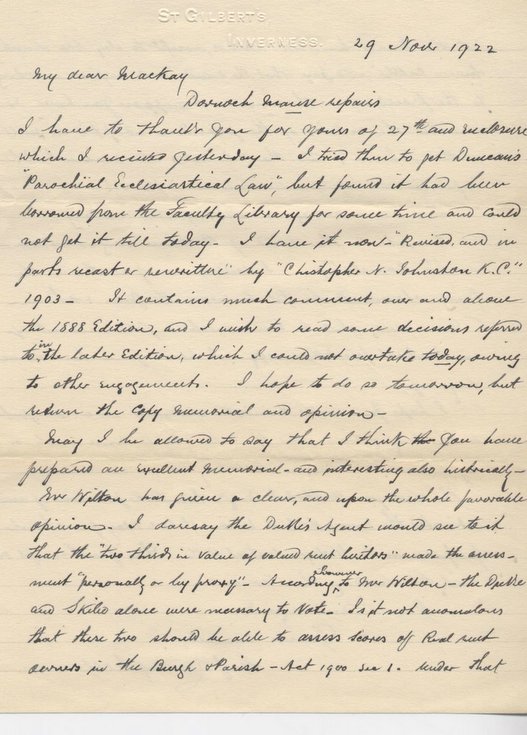 ST GILBERT'S
INVERNESS.
29 Novr 1922
My dear Mackay
Dornoch Manse repairs
I have to thank you for yours of 27th and enclosure
which I received yesterday – I tried then to get Duncan's
"Parochial Ecclesiastical Law", but found it had been
borrowed from the Faculty Library for some time and could
not get it till today – I have it now – "Revised, and in
parts recast or rewritten" by "Christopher N. Johnston K.C."
1903 – It contains much comment, over and above
the 1888 Edition, and I wish to read some decisions referred
to in the later Edition, which I could not overtake today, owing
to other engagements. I hope to do so tomorrow, but
return the copy Memorial and opinion –
May I be allowed to say that I think you have
prepared an excellent Memorial – and interesting also historically –
Mr Wilton has given a clear, and upon the whole favorable
opinion. I daresay the Duke's Agent would see to it
that the "two thirds in value of valued rent heritors" made the assess-
ment "personally or by proxy" – According however to Mr Wilton – the Duke
and Skibo alone were necessary to Vote – Is it not anomalous
that these two should be able to assess scores of Real rent
owners in the Burgh & Parish – Act 1900 sec 1. under that